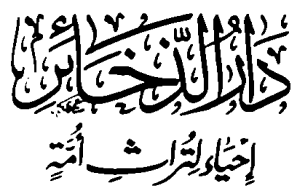 دَارُ الذَّخَائِرِ
إِحْيَاء لِتُرَاثِ أُمَّةٍ